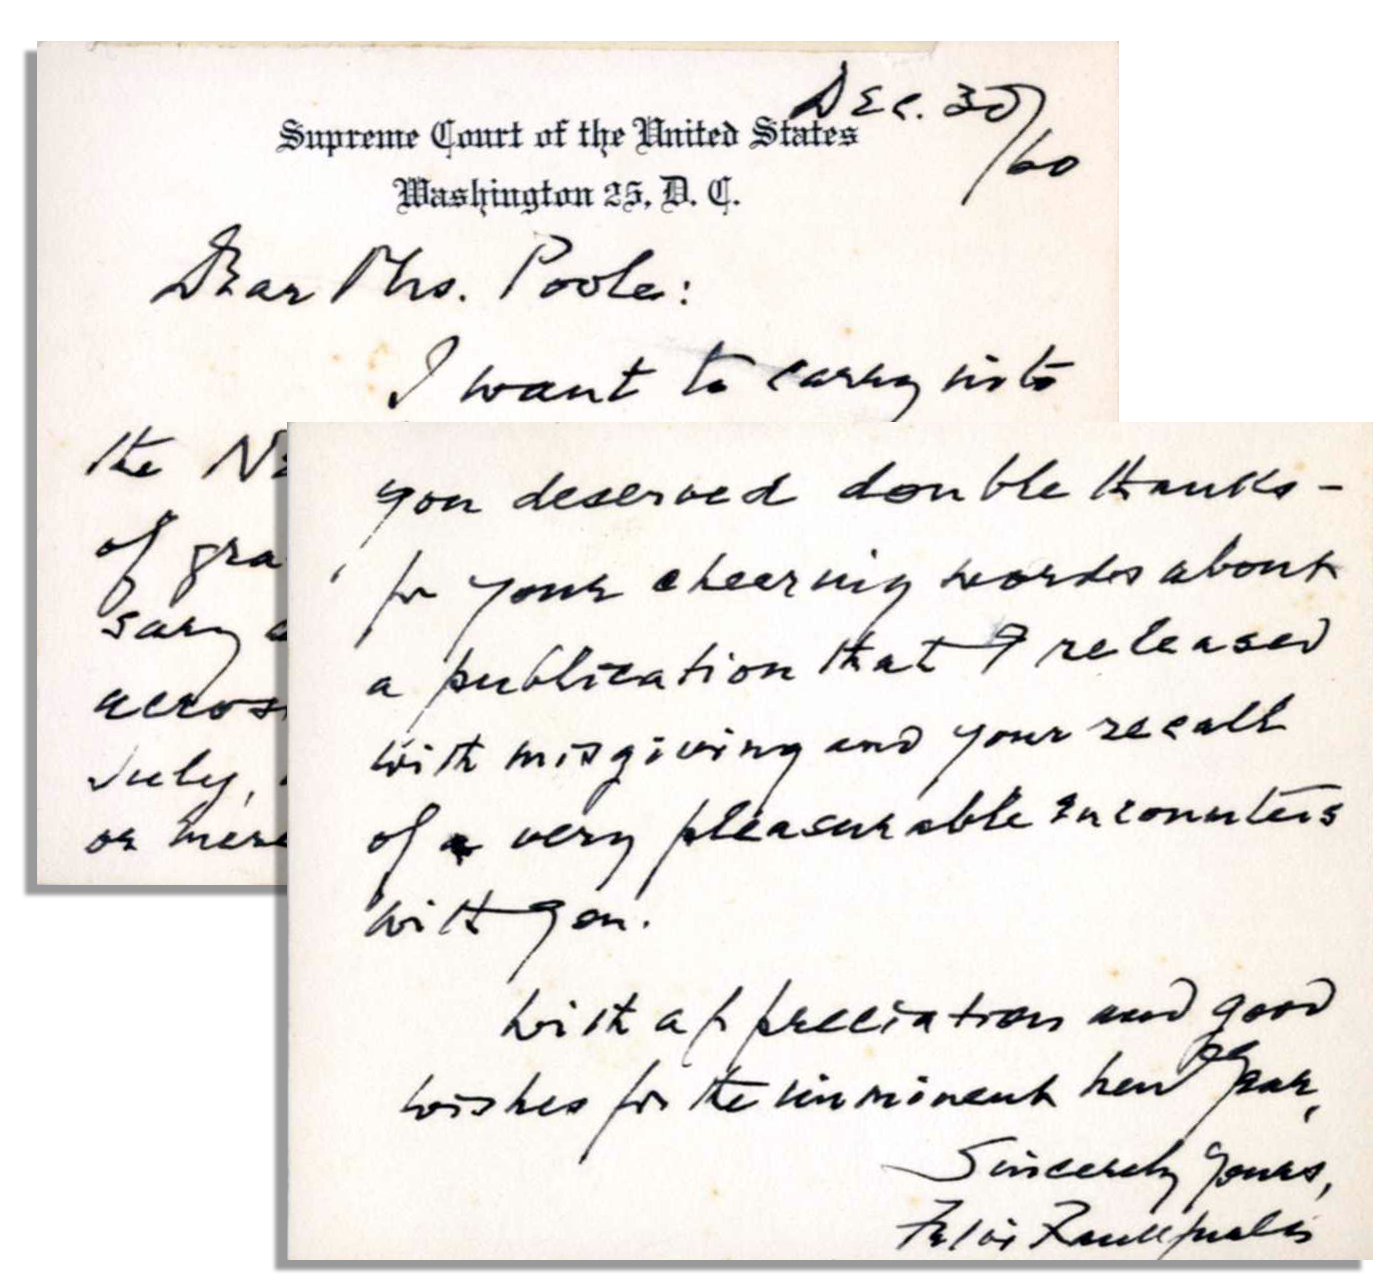 Dec. 30/60
Supreme Court of the United States
Washington 25, D. C.
Dear Mrs. Poole:
I want to carry into
the
of
sary
July,
or mere
you deserved double thanks -
for your cheering words about
a publication that I released
with misgiving and your recall
of a very pleasurable encounters
with you.
With appreciation and good
wishes for the imminent new year,
Sincerely yours,
Felix Frankfurter